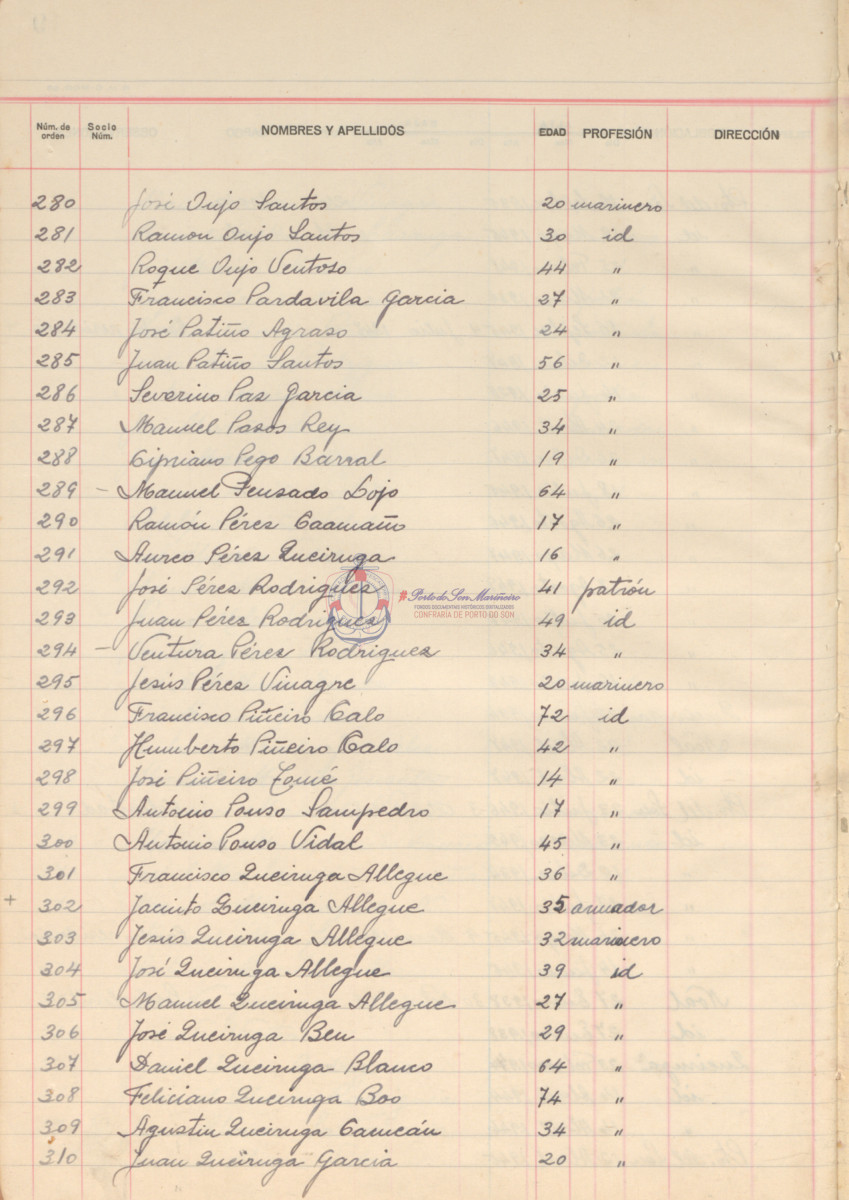 Núm. de orden Socio Núm. NOMBRES Y APELLIDOS EDAD PROFESIÓN DIRECCIÓN
280 José Oujo Santos 20 marinero
281 Ramon Oujo Santos 30 id
282 Roque Oujo Ventoso 44 "
283 Francisco Pardavila Garcia 27 "
284 José Patiño Agraso 24 "
285 Juan Patiño Santos 56 "
286 Severino Paz Garcia 25 "
287 Manuel Pazos Rey 34 "
288 Cipriano Pego Barral 19 "
289 - Manuel Pensado Lojo 64 "
290 Ramón Pérez Caamaño 17 "
291 Aureo Pérez Queiruga 16 "
292 José Pérez Rodriguez 41 patrón
#Porto do Son Mariñeiro
FONDOS DOCUMENTAIS HISTÓRICOS DIXITALIZADOS
CONFRARÍA DE PORTO DO SON
293 Juan Pérez Rodriguez 49 id
294 - Ventura Pérez Rodriguez 34 "
295 Jesús Pérez Vinagre 20 marinero
296 Francisco Piñeiro Calo 72 id
297 Humberto Piñeiro Calo 42 "
298 José Piñeiro Tomé 14 "
299 Antonio Pouso Sampedro 17 "
300 Antonio Pouso Vidal 45 "
301 Francisco Queiruga Allegue 36 "
+ 302 Jacinto Queiruga Allegue 35 armador
303 Jesús Queiruga Allegue 32 marinero
304 José Queiruga Allegue 39 id
305 Manuel Queiruga Allegue 27 "
306 José Queiruga Ben 29 "
307 Daniel Queiruga Blanco 64 "
308 Feliciano Queiruga Boo 74 "
309 Agustin Queiruga Camcán 34 "
310 Juan Queiruga Garcia 20 "